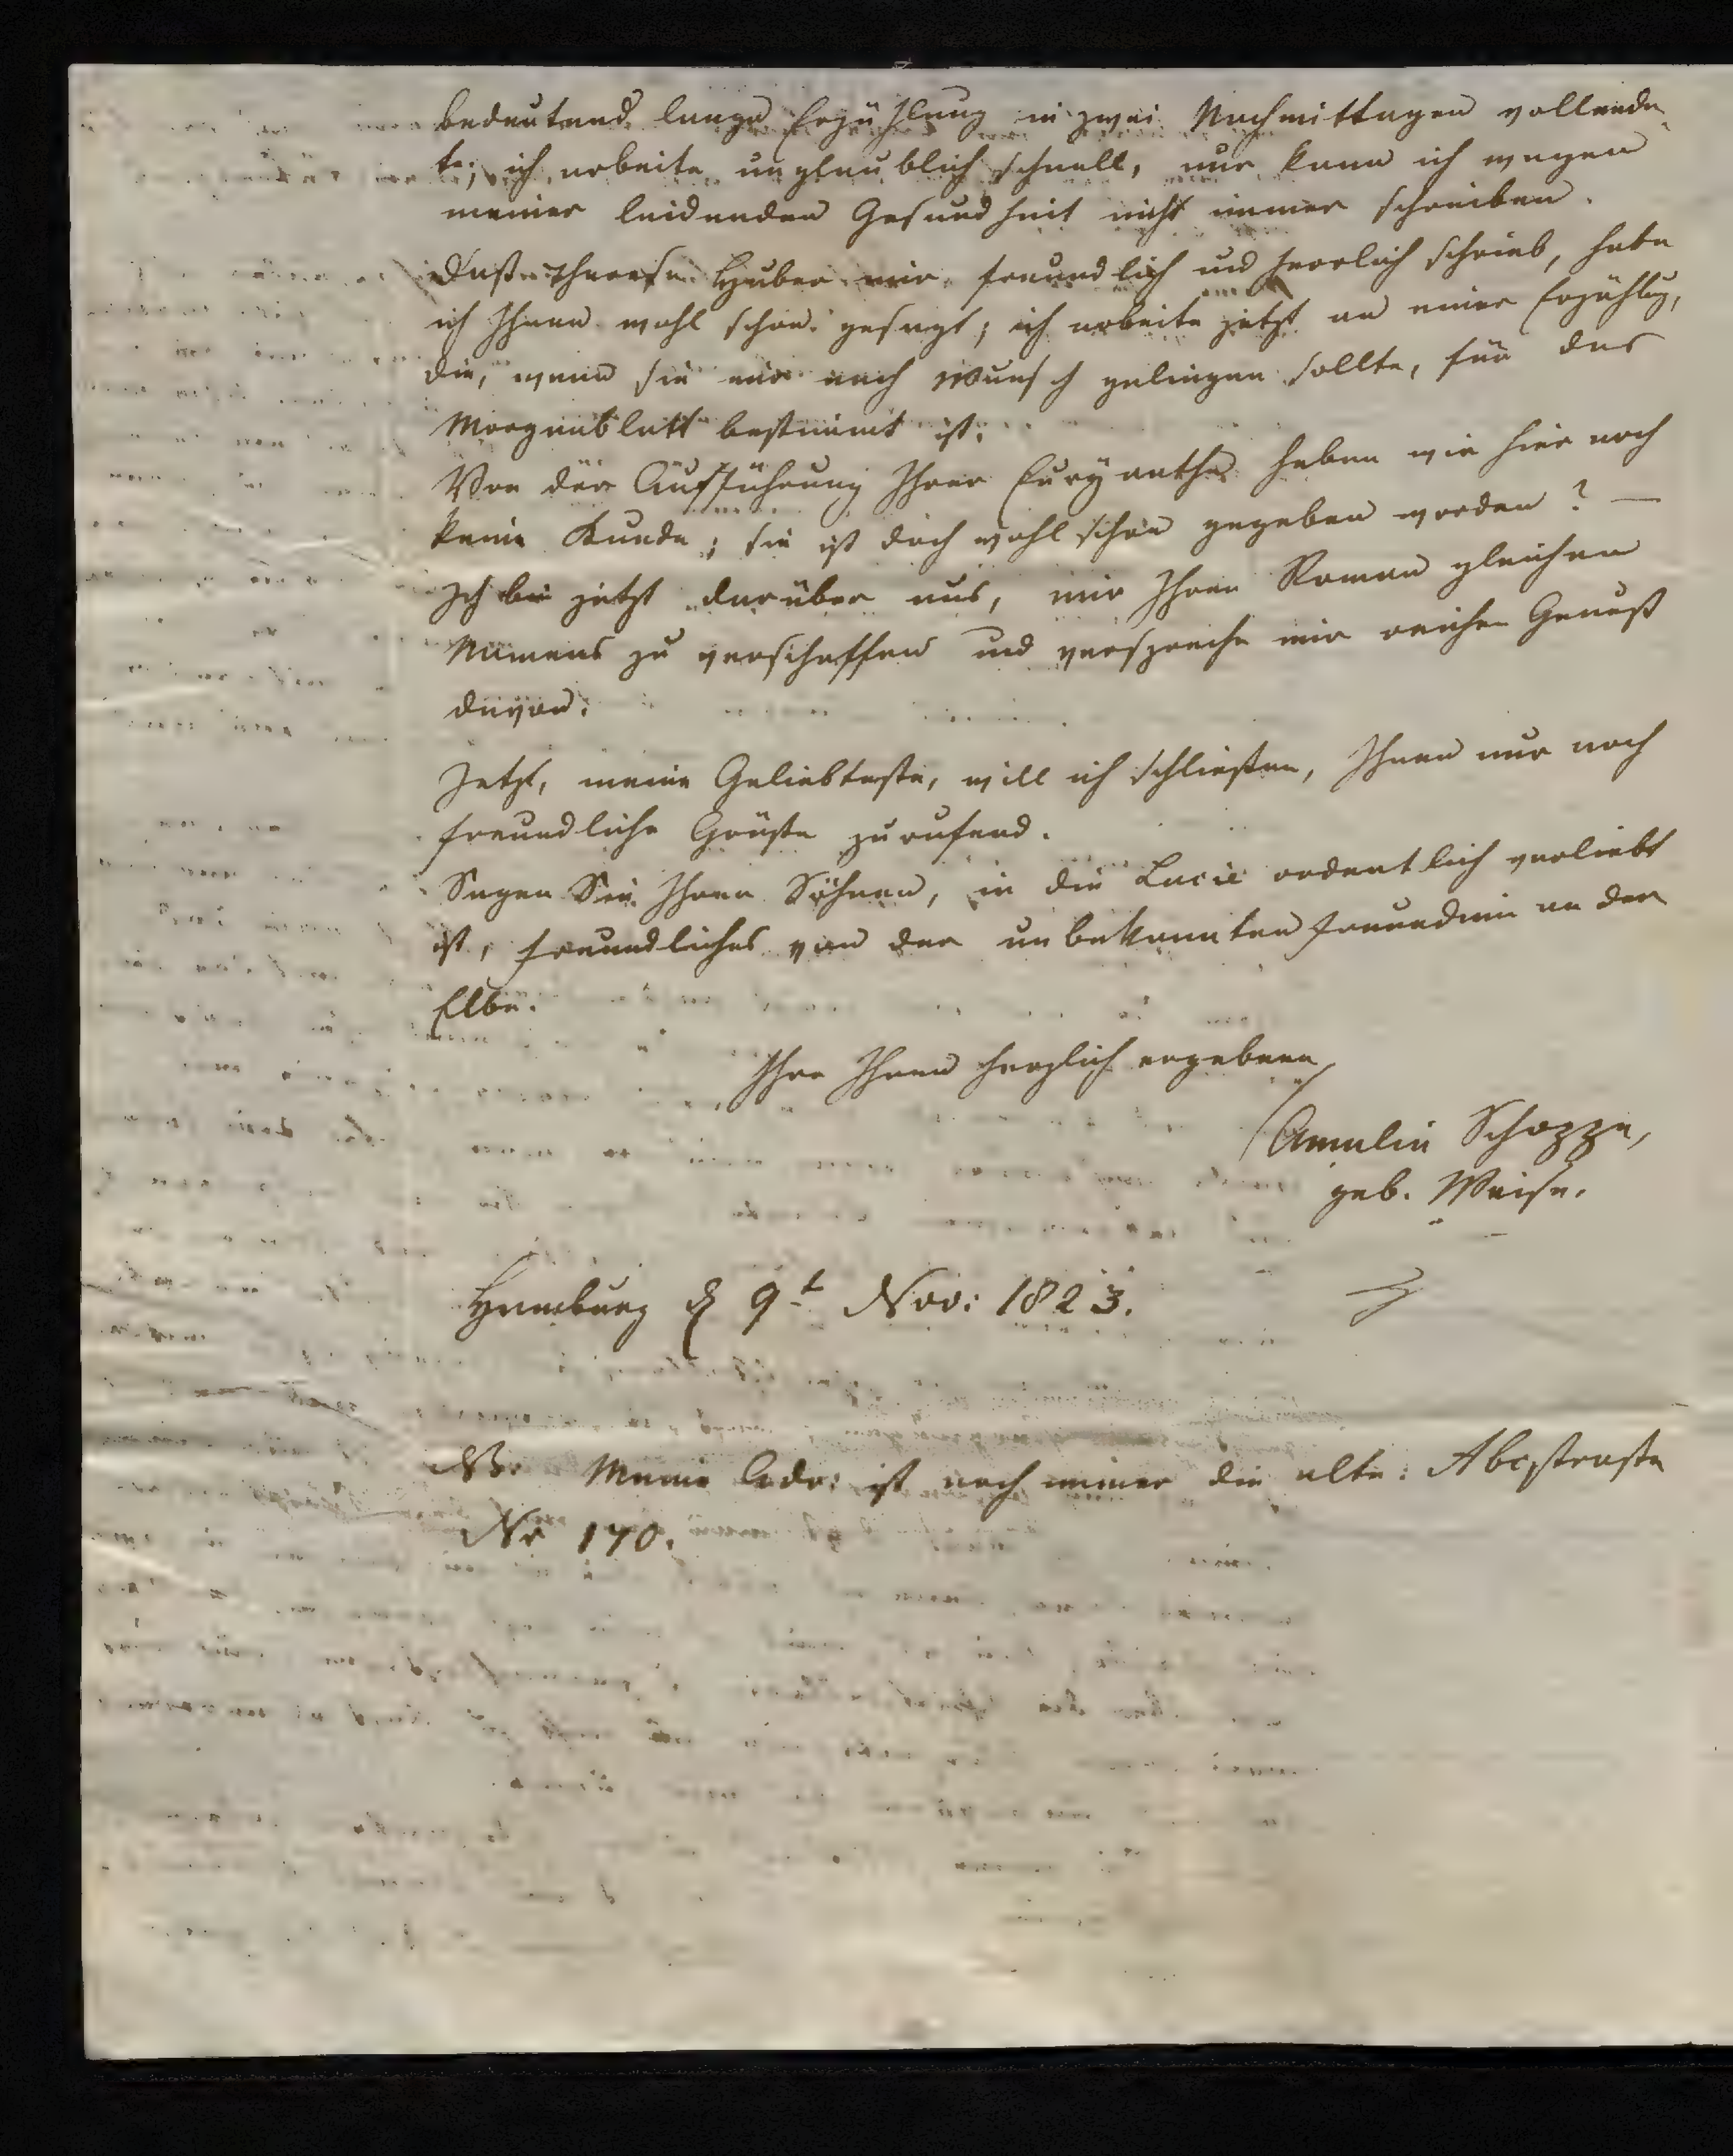 bedeutend lange Erzählung in zwei Nachmittagen vollende-
te; ich arbeite unglaublich schnell, nur kann ich wegen
meiner leidenden Gesundheit nicht immer schreiben.
Daß Therese Huber mir freundlich und herrlich schrieb, habe
ich Ihnen wohl schon gesagt; ich arbeite jetzt an einer Erzählug,
die, wenn sie mir nach Wunsch gelingen sollte, für das
Morgenblatt bestimmt ist.
Von der Aufführung Ihrer Euryanthe haben wir hier noch
keine Kunde; sie ist doch wohl schon gegeben worden? —
Ich bin jetzt darüber aus, mir Ihren Roman gleichen
Namens zu verschaffen und verspreche mir reichen Genuß
davon.
Jetzt, meine Geliebteste, will ich schließen, Ihnen nur noch
freundliche Grüße zurufend.
Sagen Sie Ihren Söhnen, in die Lucie ordentlich verliebt
ist, freundliches von der unbekannten Freundinn an der
Elbe.
Ihre Ihnen herzlich ergebene
Amalia Schoppe,
geb. Weise.
Hamburg d 9t Nov: 1823.
NB. Meine Adr: ist noch immer die alte: Abcstraße
Nr 170.